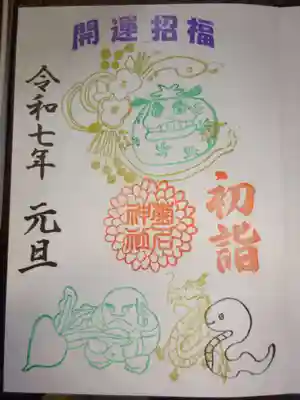 開運招福
初詣
神社
令和七年 元旦